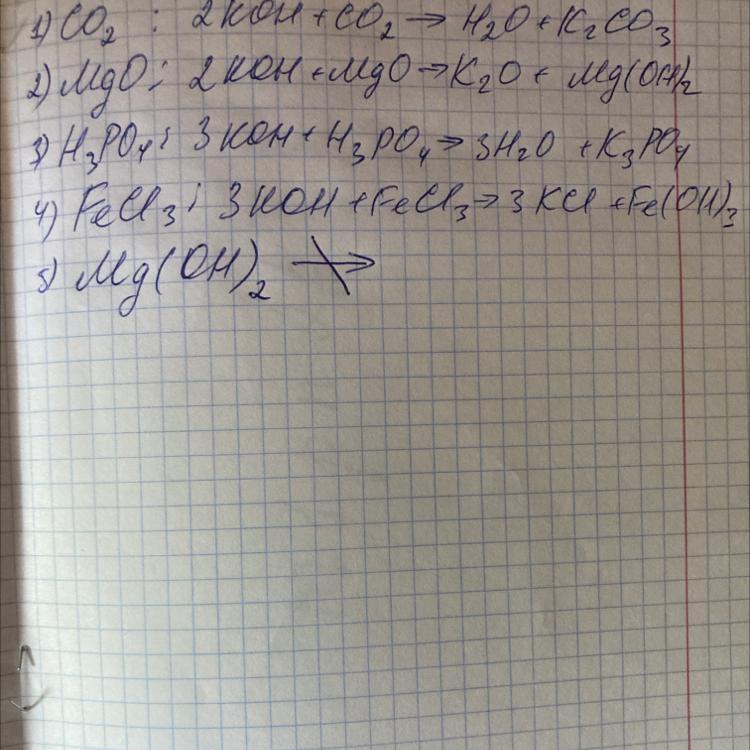 1) CO₂ : 2KOH + CO₂ → H₂O + K₂CO₃
2) MgO : 2KOH + MgO → K₂O + Mg(OH)₂
3) H₃PO₄ : 3KOH + H₃PO₄ → 3H₂O + K₃PO₄
4) FeCl₃ : 3KOH + FeCl₃ → 3KCl + Fe(OH)₃
5) Mg(OH)₂ ↛